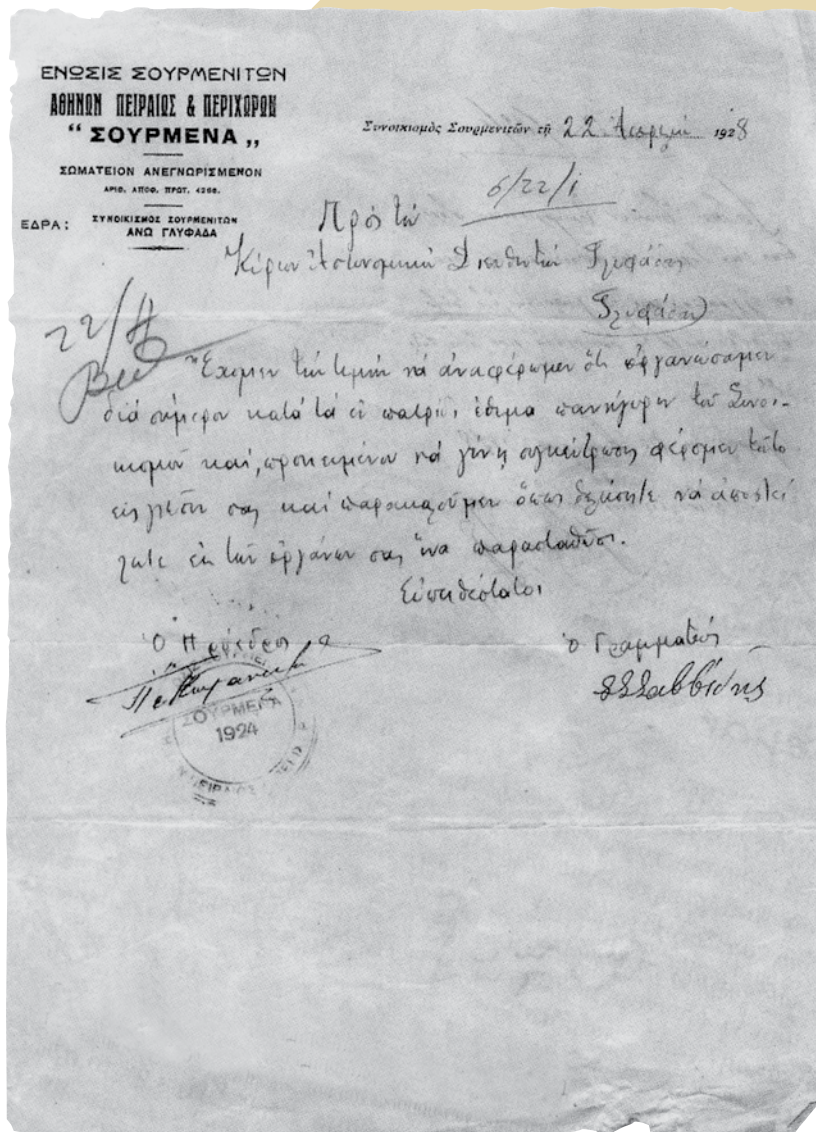 ΕΝΩΣΙΣ ΣΟΥΡΜΕΝΙΤΩΝ
ΑΘΗΝΩΝ ΠΕΙΡΑΙΩΣ & ΠΕΡΙΧΩΡΩΝ
“ ΣΟΥΡΜΕΝΑ „
ΣΩΜΑΤΕΙΟΝ ΑΝΕΓΝΩΡΙΣΜΕΝΟΝ
ΑΡΙΘ. ΑΠΟΦ. ΠΡΩΤ. 4266.
ΕΔΡΑ: ΣΥΝΟΙΚΙΣΜΟΣ ΣΟΥΡΜΕΝΙΤΩΝ
ΑΝΩ ΓΛΥΦΑΔΑ
Συνοικισμὸς Σουρμενιτῶν τῇ 22 Ἀπριλίου 1928
6/22/1
Πρὸς τὸν
Κύριον Ἀστυνομικὸν Διευθυντὴν Γλυφάδας
Γλυφάδαν
22/4
Ἔχομεν τὴν τιμὴν νὰ ἀναφέρωμεν ὅτι ὀργανώσαμεν
διὰ σήμερον κατὰ τὰ ἐν πατρίδι ἔθιμα πανήγυριν τοῦ Συνοι-
κισμοῦ καί, προκειμένου νὰ γίνῃ συγκέντρωσις φέρομεν τοῦτο
εἰς γνῶσιν σας καὶ παρακαλοῦμεν ὅπως δηλώσητε νὰ ἀποστεί
λητε ἐκ τῶν ὀργάνων σας ἵνα παρασταθῶσι.
Εὐπειθέστατοι
Ὁ Πρόεδρος
ὁ Γραμματεύς
Σαββίδης
ΣΟΥΡΜΕΝΑ
1924
ΠΕΙΡΑΙΩΣ